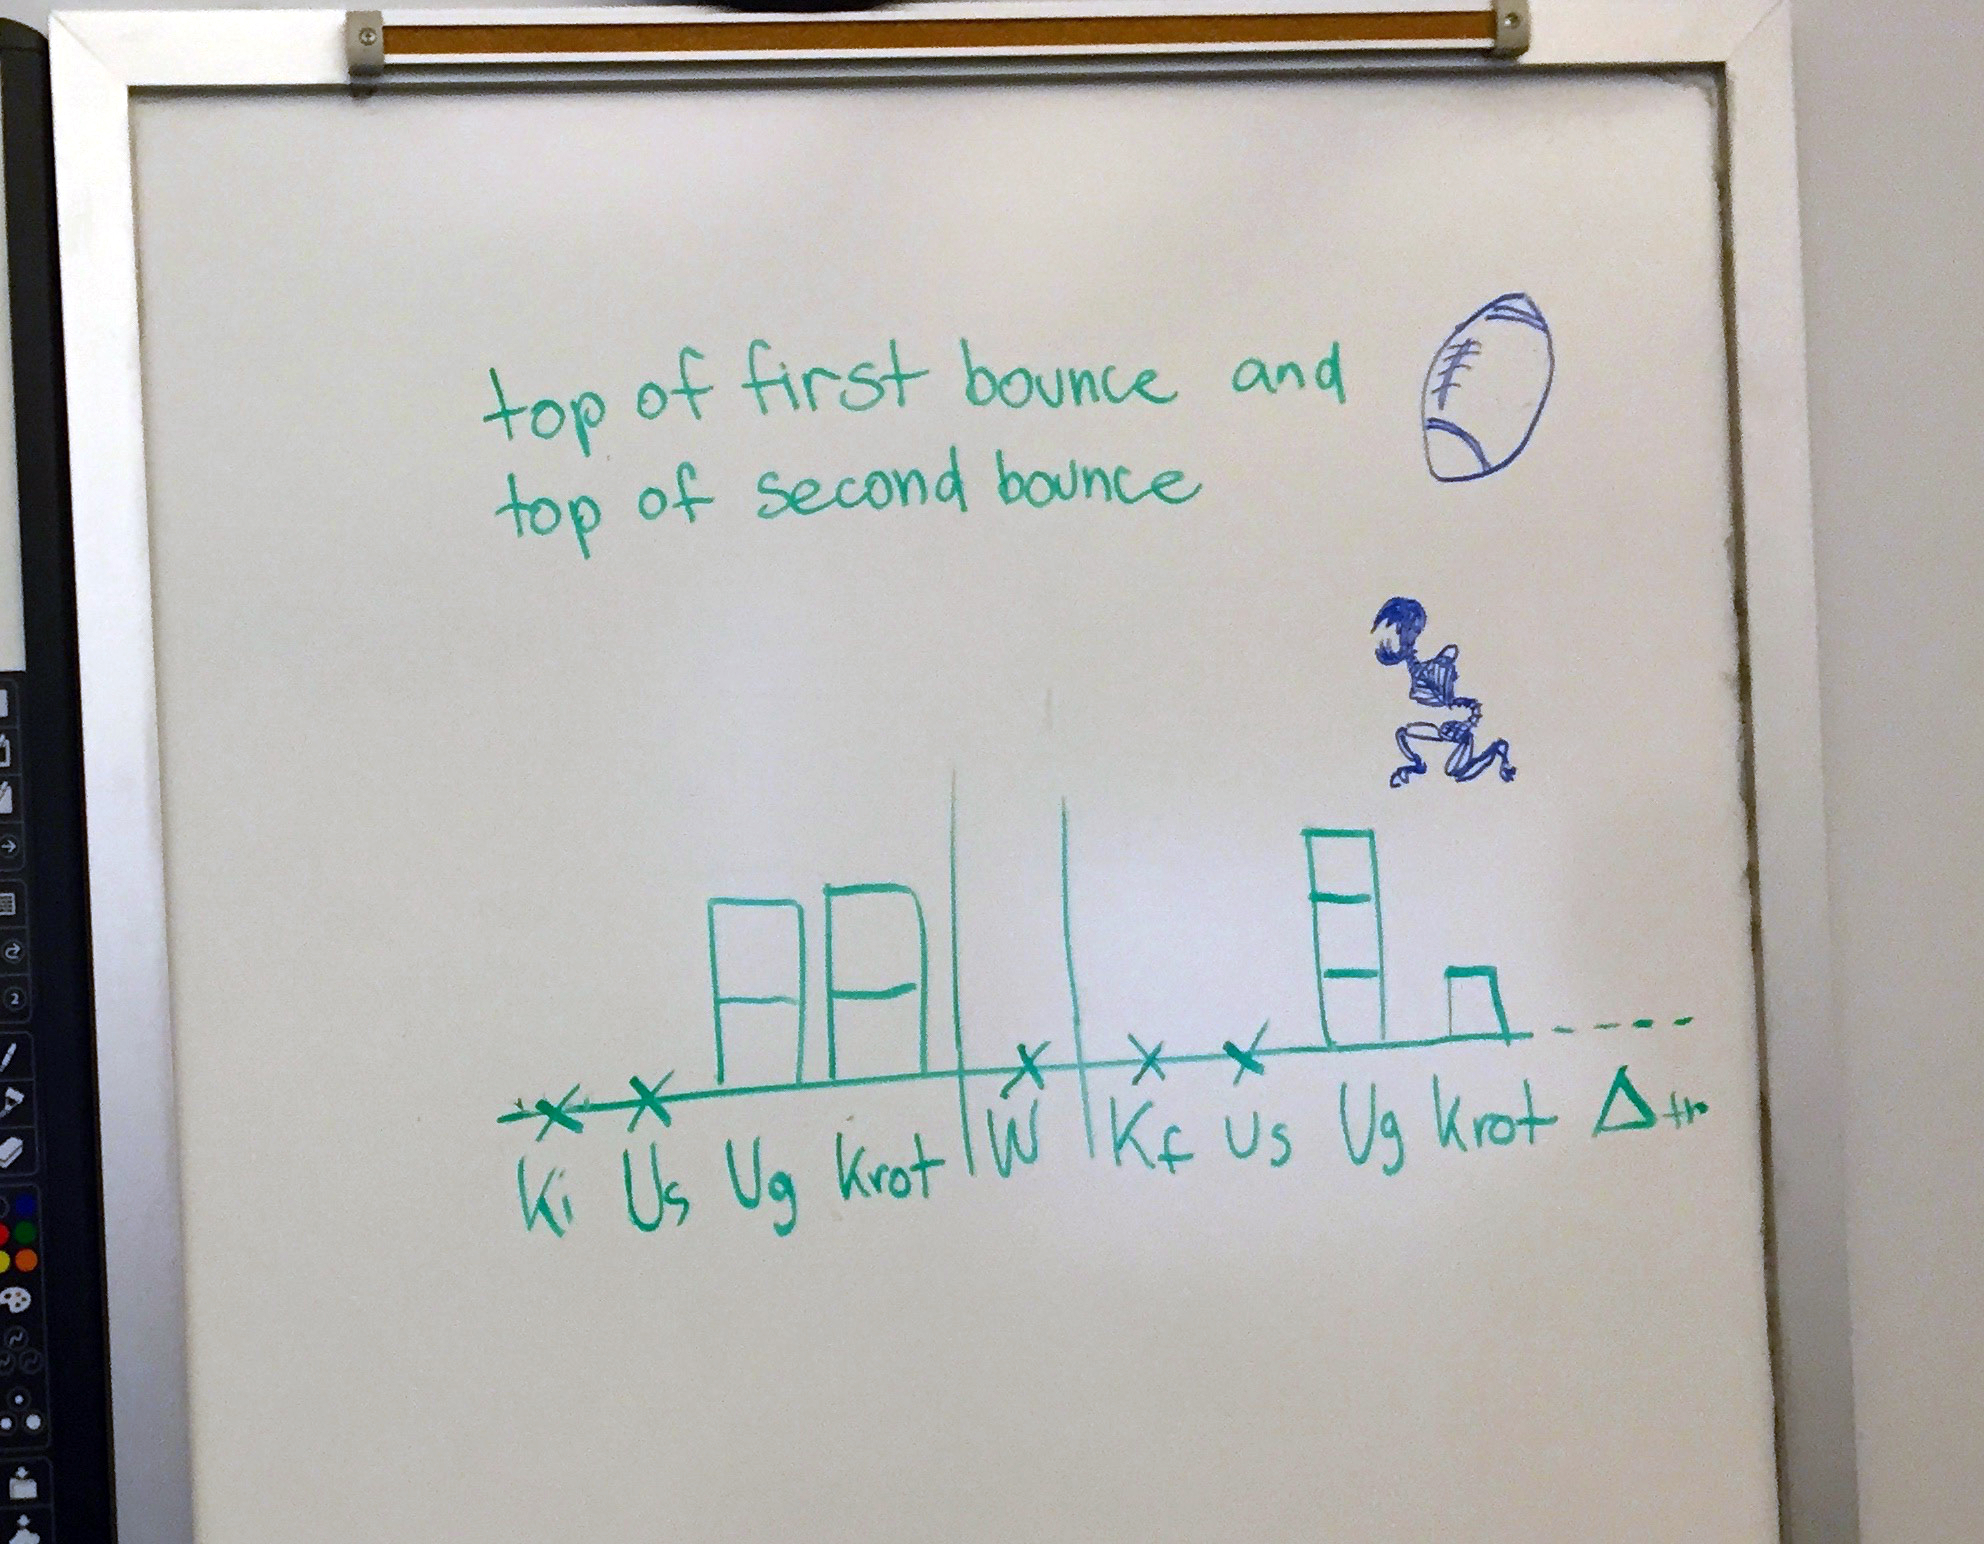 top of first bounce and
top of second bounce
Ki Us Ug Krot W Kf Us Ug Krot Δ